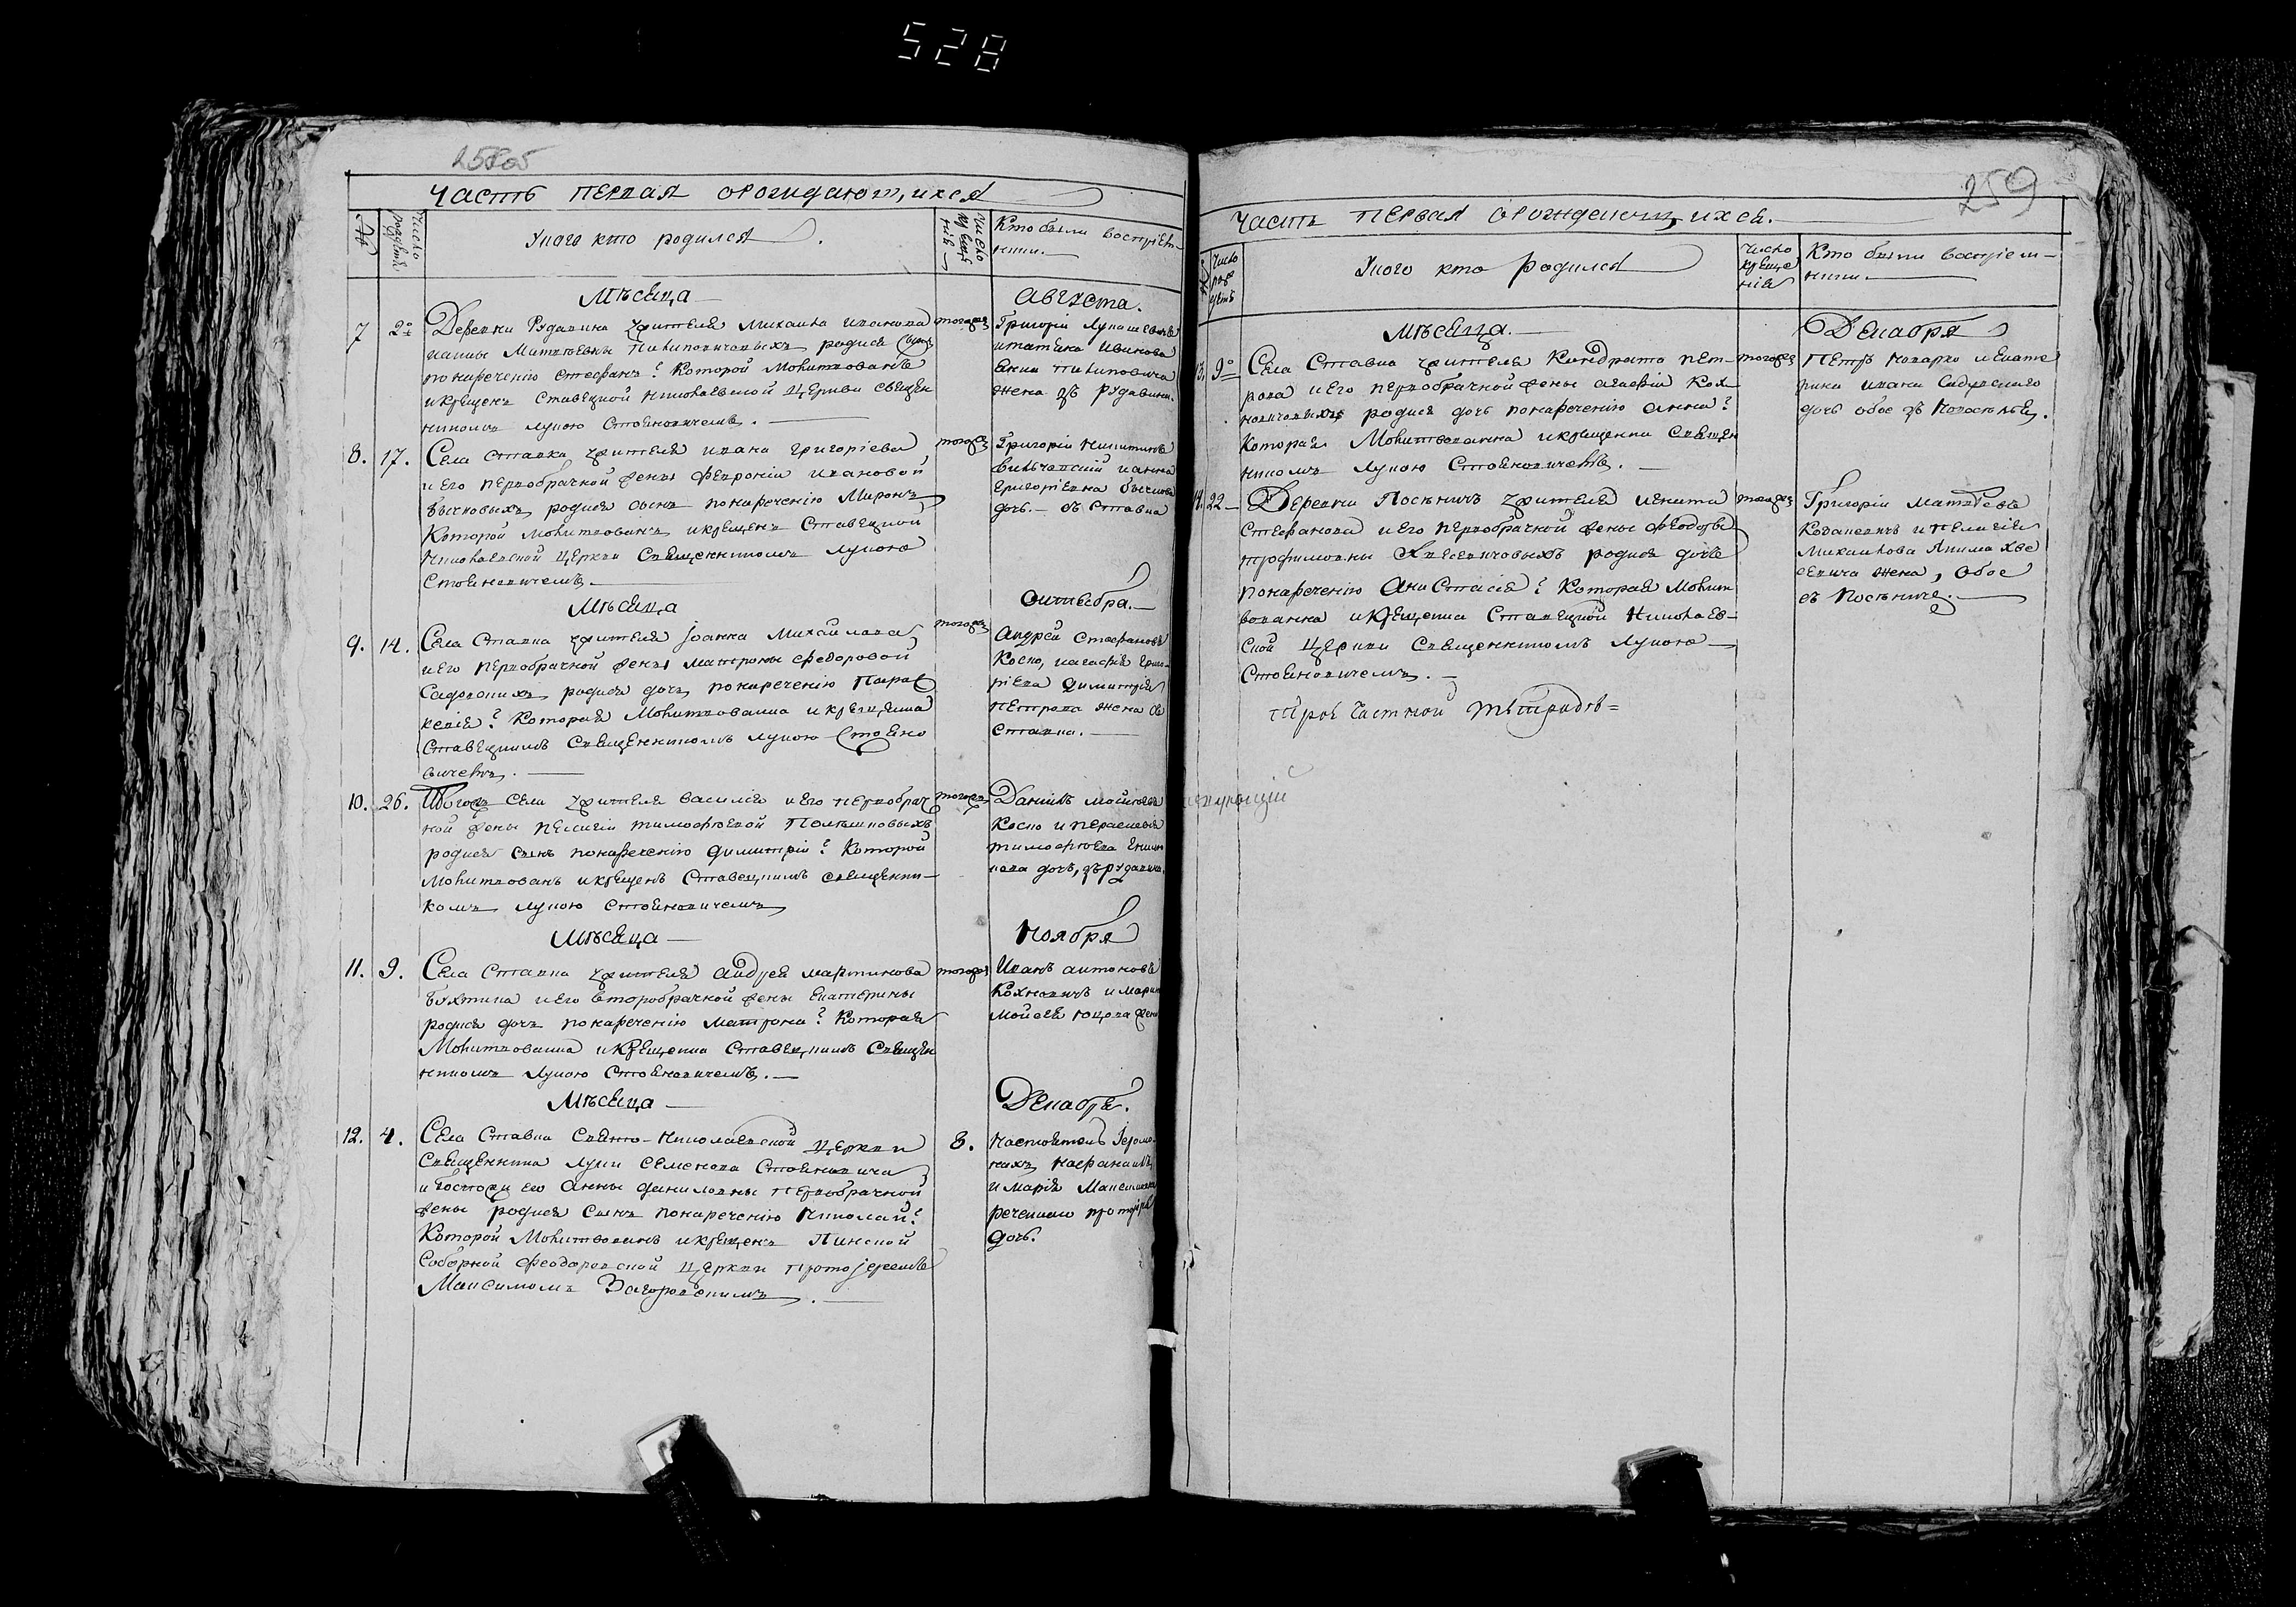 528
258об
Часть первая ораждающихся
№
Число рождения
Укого кто родился.
Число крещенія
Кто были воспріем-
ники.
Мѣсяца
Августа.
7 2о Деревни Рудавина жителя Михаила Иванова
тогожъ
ианны Матвѣевны Пилиповичовыхъ родися сынъ
понаречению Стефанъ: Которой Молитвованъ
икрещенъ Ставецкой Николаевской Церкви священ
никомъ Лукою Стояновичемъ.
Григорій
итатяна Иванова
Пилиповича
жена зъ Рудавина.
8. 17. Села Ставка жителя Ивана Григоріева
тогожъ
и его первобрачной жены Февроніи Ивановой
Бычковыхъ родися сынъ понареченію Миронъ
Которой молитвованъ икрещенъ Ставецкой
Николаевской Церкви Священникомъ Лукою
Стояновичемъ.
Григорій Никитинъ
ианна
Григоріевна Бычкова
дочь. зъ Ставка
Мѣсяца
Октября.
9. 14. Села Ставка жителя Іоанна Михайлова
тогожъ
и его первобрачной жены Матроны Федоровой
родися дочь понареченію Парас
кевія: Которая Молитвованна икрещенна
Ставецкимъ Священникомъ Лукою Стояно
вичемъ.
Андрей Стефановъ
Коско, иагафія Григо-
ріева Димитрія
Петрова жена съ
Ставка.
10. 26. Тогожъ Села жителя Василія иего первобрач
тогожъ
ной жены Пелагіи Тимофѣевой
родися сынъ понареченію Димитрій: Которой
Молитвованъ икрещенъ Ставецкимъ священни-
комъ Лукою Стояновичемъ
Даніилъ
Коско и
Тимофѣева
дочь, зъ Рудавина.
Мѣсяца
Ноября
11. 9. Села Ставка жителя Андрея Мартинова
тогожъ
Бухтика иего второбрачной жены Екатерины
родися дочь понареченію Матрона: Которая
Молитвованна икрещенна Ставецкимъ Священ
никомъ Лукою Стояновичемъ.
Иванъ Антоновъ
Кохновичъ и Марин
Мойсея Юцова жен
Мѣсяца
Декабря.
12. 4. Села Ставка Свято-Николаевской Церкви
8.
Священника Луки Семенова Стояновича
его Анны Даниловны первобрачной
жены родися сынъ понареченію Николай:
Которой Молитвованъ икрещенъ Пинской
Соборной Феодоровской Церкви протоіереемъ
Максимомъ Загоровскимъ.
Настоятель Іеромо-
нахъ
и Марія
реченнаго протоіерея
дочь.
259
Часть первая орождающихся.
Число
рож
денія
Укого кто родился
Число
креще
нія
Кто были воспріем-
ники.
Мѣсяца.
Декабря
13. 9о Села Ставка жителя Кондрата Пет-
тогожъ
рова иего первобрачной жены агафіи Кох
новичовыхъ родися дочь понареченію Анна:
Которая Молитвованна икрещенна Священ
никомъ Лукою Стояновичемъ.
Петръ иекате
рина ивана
дочь обое
14. 22 Деревни Посѣничъ жителя
тогожъ
Стефанова иего первобрачной жены Феодоры
Трофимовны родися дочь
понареченію Анастасія: Которая Молит
вованна икрещенна Ставецкой Николаев-
ской Церкви Священникомъ Лукою
Стояновичемъ.
Григорій Матвѣевъ
и Пелагія
Михайлова
жена, Обое
съ Посѣничъ.